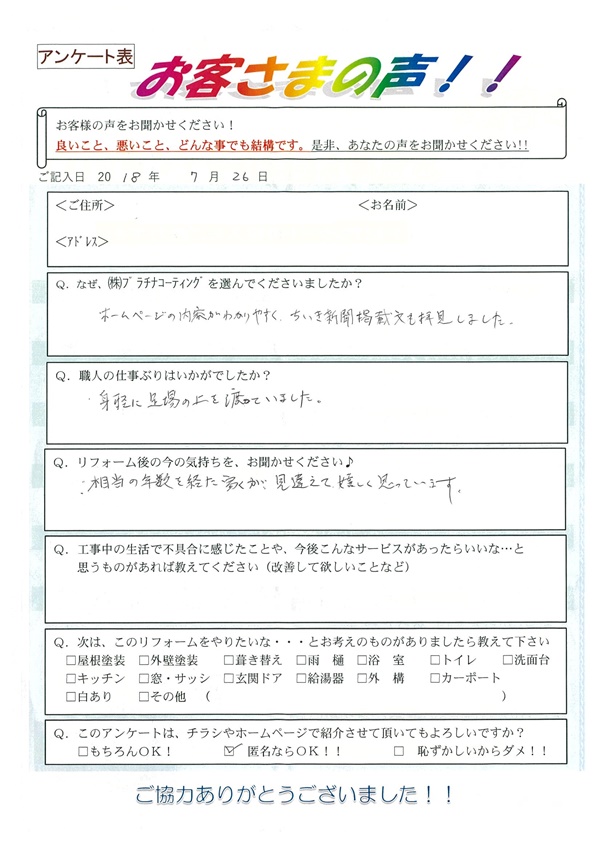 アンケート表
お客さまの声！！
お客様の声をお聞かせください！
良いこと、悪いこと、どんな事でも結構です。是非、あなたの声をお聞かせください!!
ご記入日 2018年 7月 26日
＜ご住所＞ ＜お名前＞
＜ｱﾄﾞﾚｽ＞
Q．なぜ、㈱ﾌﾟﾗﾁﾅｺｰﾃｨﾝｸﾞを選んでくださいましたか？
ホームページの内容がわかりやすく、ちいき新聞掲載文も拝見しました。
Q．職人の仕事ぶりはいかがでしたか？
・身軽に足場の上を渡っていました。
Q．リフォーム後の今の気持ちを、お聞かせください♪
：相当の年数を経た家が、見違えて嬉しく思っています。
Q．工事中の生活で不具合に感じたことや、今後こんなサービスがあったらいいな…と
思うものがあれば教えてください（改善して欲しいことなど）
Q．次は、このリフォームをやりたいな・・・とお考えのものがありましたら教えて下さい
□屋根塗装 □外壁塗装 □葺き替え □雨　樋 □浴　室 □トイレ □洗面台
□キッチン □窓・サッシ □玄関ドア □給湯器 □外　構 □カーポート
□白あり □その他 （ ）
Q．このアンケートは、チラシやホームページで紹介させて頂いてもよろしいですか？
□もちろんOK！ ☑ 匿名ならOK！！ □ 恥ずかしいからダメ！！
ご協力ありがとうございました！！